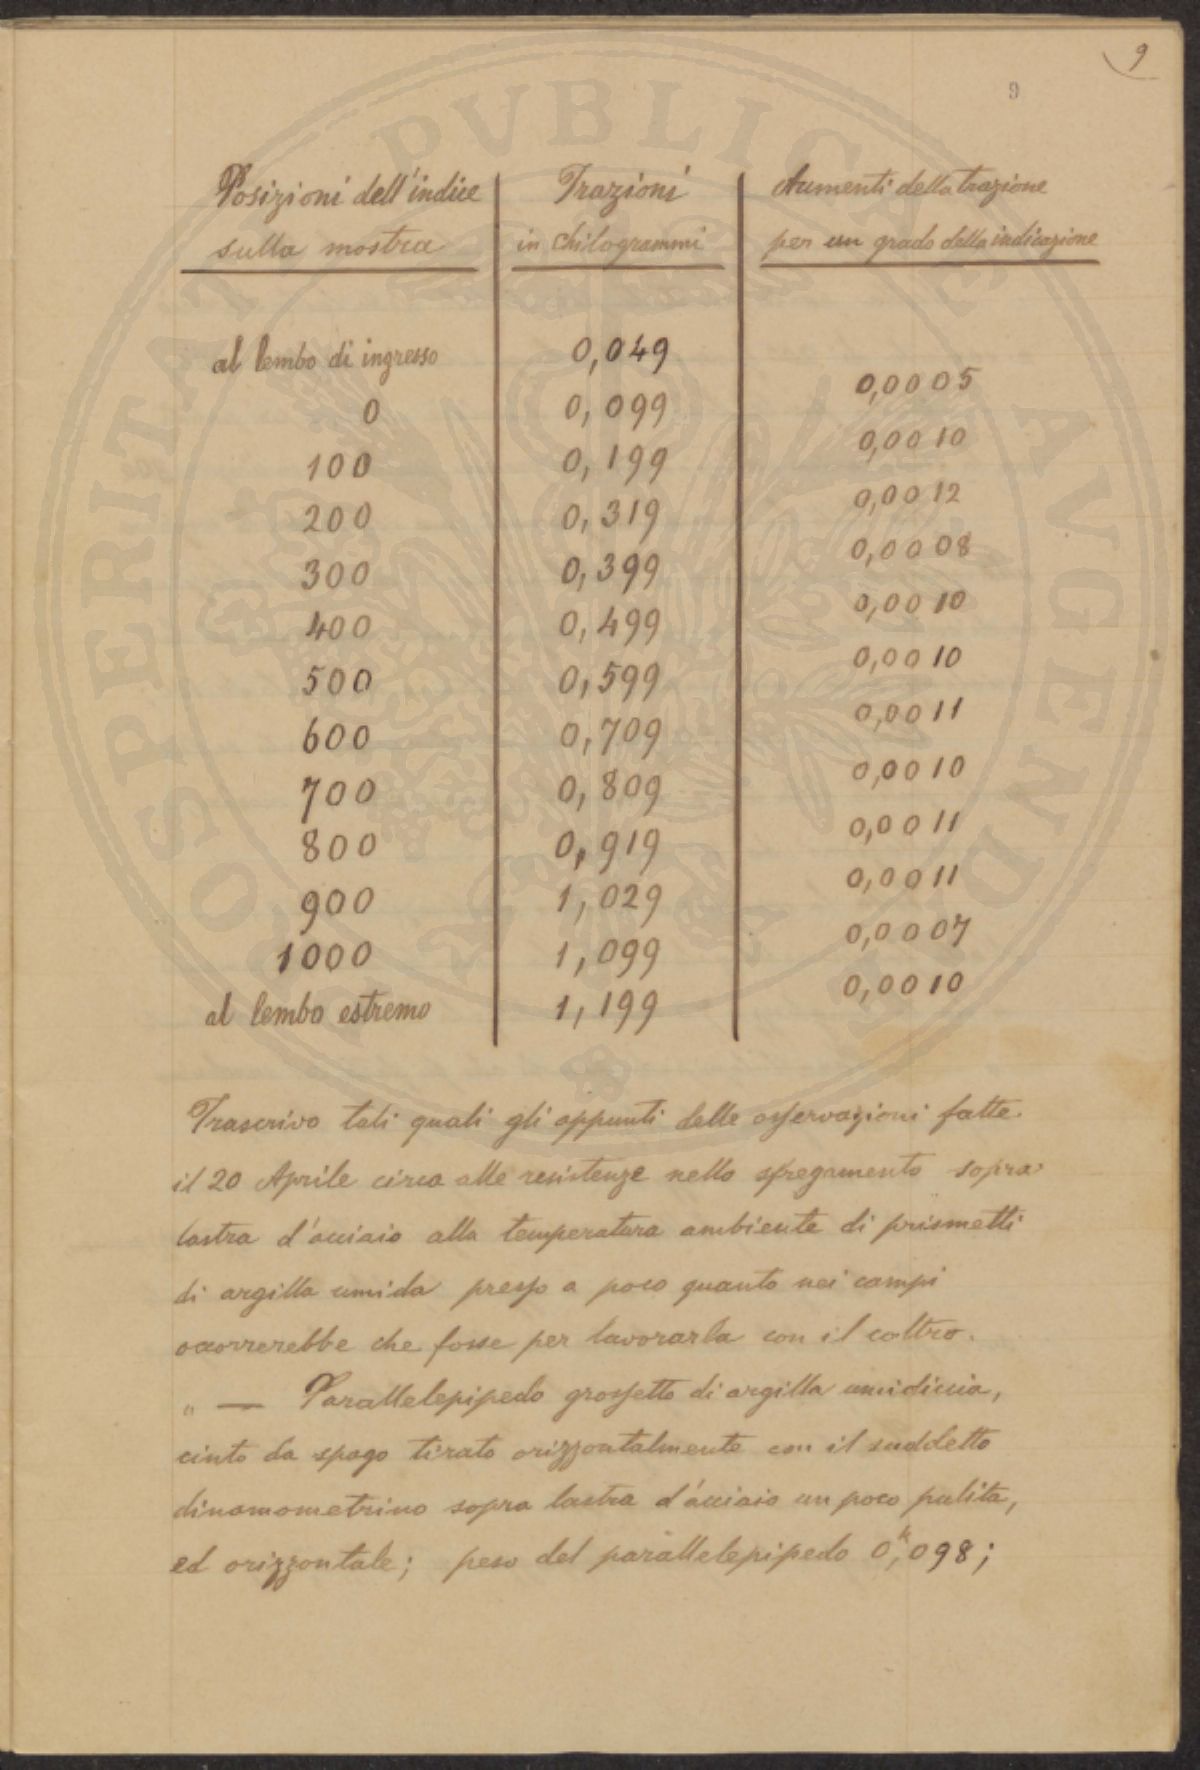 9
9
Posizioni dell'indice | Trazioni | Aumenti della trazione
sulla mostra | in chilogrammi | per un grado della indicazione
al lembo di ingresso | 0,049
0,0005
0 | 0,099
0,0010
100 | 0,199
0,0012
200 | 0,319
0,0008
300 | 0,399
0,0010
400 | 0,499
0,0010
500 | 0,599
0,0011
600 | 0,709
0,0010
700 | 0,809
0,0011
800 | 0,919
0,0011
900 | 1,029
0,0007
1000 | 1,099
0,0010
al lembo estremo | 1,199
Trascrivo tali quali gli appunti delle osservazioni fatte
il 20 Aprile circa alle resistenze nello sfregamento sopra
lastra d'acciaio alla temperatura ambiente di prismetti
di argilla umida presso a poco quanto nei campi
occorrerebbe che fosse per lavorarla con il coltro.
" — Parallelepipedo grossetto di argilla umidiccia,
cinto da spago tirato orizzontalmente con il suddetto
dinamometrino sopra lastra d'acciaio un poco pulita,
ed orizzontale; peso del parallelepipedo 0,ᵏ098;
PVBLICAE AVCENDAE PROSPERITATI